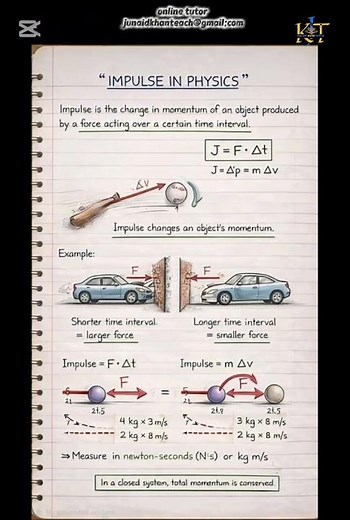 online tutor
junaidkhanteach@gmail;com
KT
“IMPULSE IN PHYSICS”
Impulse is the change in momentum of an object produced
by a force acting over a certain time interval.
J = F · Δt
J = Δp = m Δv
Δv
Impulse changes an object's momentum.
Example:
F F
Shorter time interval Longer time interval
= larger force = smaller force
Impulse = F · Δt Impulse = m Δv
F = F
4 kg × 3 m/s 3 kg × 8 m/s
2 kg × 8 m/s 2 kg × 8 m/s
⇒ Measure in newton-seconds (N·s) or kg m/s
In a closed system, total momentum is conserved.